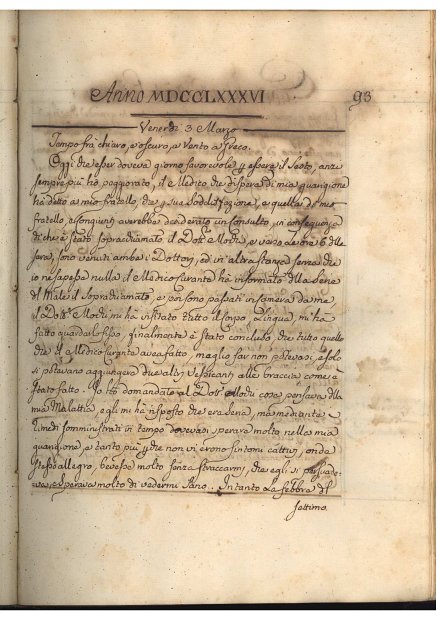 Anno MDCCLXXXVI
93
Venerdì 3 Marzo
Tempo frà chiaro, e oscuro, e Vento a Greco.
Oggi che esser doveva giorno favorevole per essere il Sesto, anzi
sempre più hò peggiorato, il Medico che dispera di mia guarigione
hà detto a mio fratello, che per sua Sodisfazione, e quella di mio
fratello, e congiunti averebbe desiderato un Consulto, in conseguenza
di che è stato sopra chiamato il Dott.e Modi, e verso le ore 6 della
sera, sono venuti ambe i Dottori, ed in altra stanza senza che
io ne sapessi nulla il Medico Curante hà informato della Serie
del Male il Sopra chiamato, e poi sono passati in camera da me,
il Dott.e Modi mi hà visitato tutto il Corpo, Lingua, mi hà
fatto guardar fisso, finalmente è stato concluso, che tutto quello
che il Medico Curante avea fatto, meglio far non potevasi, e solo
si potevano aggiungere due altri Vessicanti alle braccia come è
stato fatto. Io hò domandato al Dott.e Modi cosa pensava della
mia Malattia, egli mi hà risposto che era Seria, ma mediante i
Rimedi somministrati in tempo doveasi sperare molto nella mia
guarigione, e tanto più che non vi erono sintomi cattivi, onde
stessi allegro, bevessi molto senza straccarmi, che egli si persuade-
va, e sperava molto di vedermi Sano. Intanto la febbre del
settimo